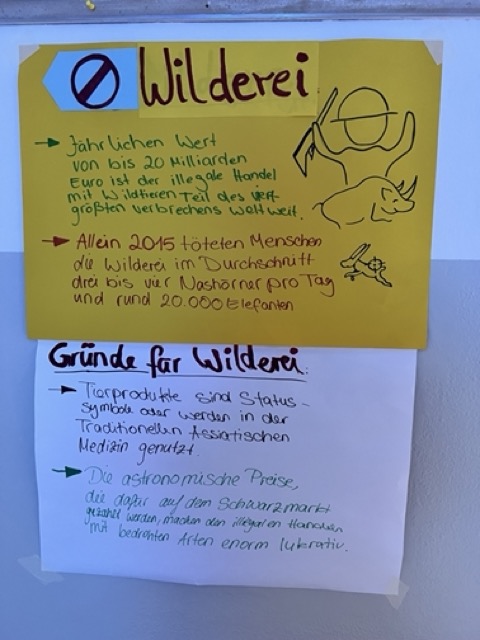 Wilderei
→ Jährlichen Wert
von bis 20 Milliarden
Euro ist der illegale Handel
mit Wildtieren Teil des viert
größten verbrechens Weltweit.
→ Allein 2015 töteten Menschen
die Wilderei im Durchschnitt
drei bis vier Nashörner pro Tag
und rund 20.000 Elefanten
Gründe für Wilderei:
→ Tierprodukte sind Status-
symbole oder werden in der
Traditionellen Assiatischen
Medizin genutzt.
→ Die astronomische Preise,
die dafür auf dem Schwarzmarkt
gezahlt werden, machen den illegalen Handeln
mit bedrohten Arten enorm lukrativ.